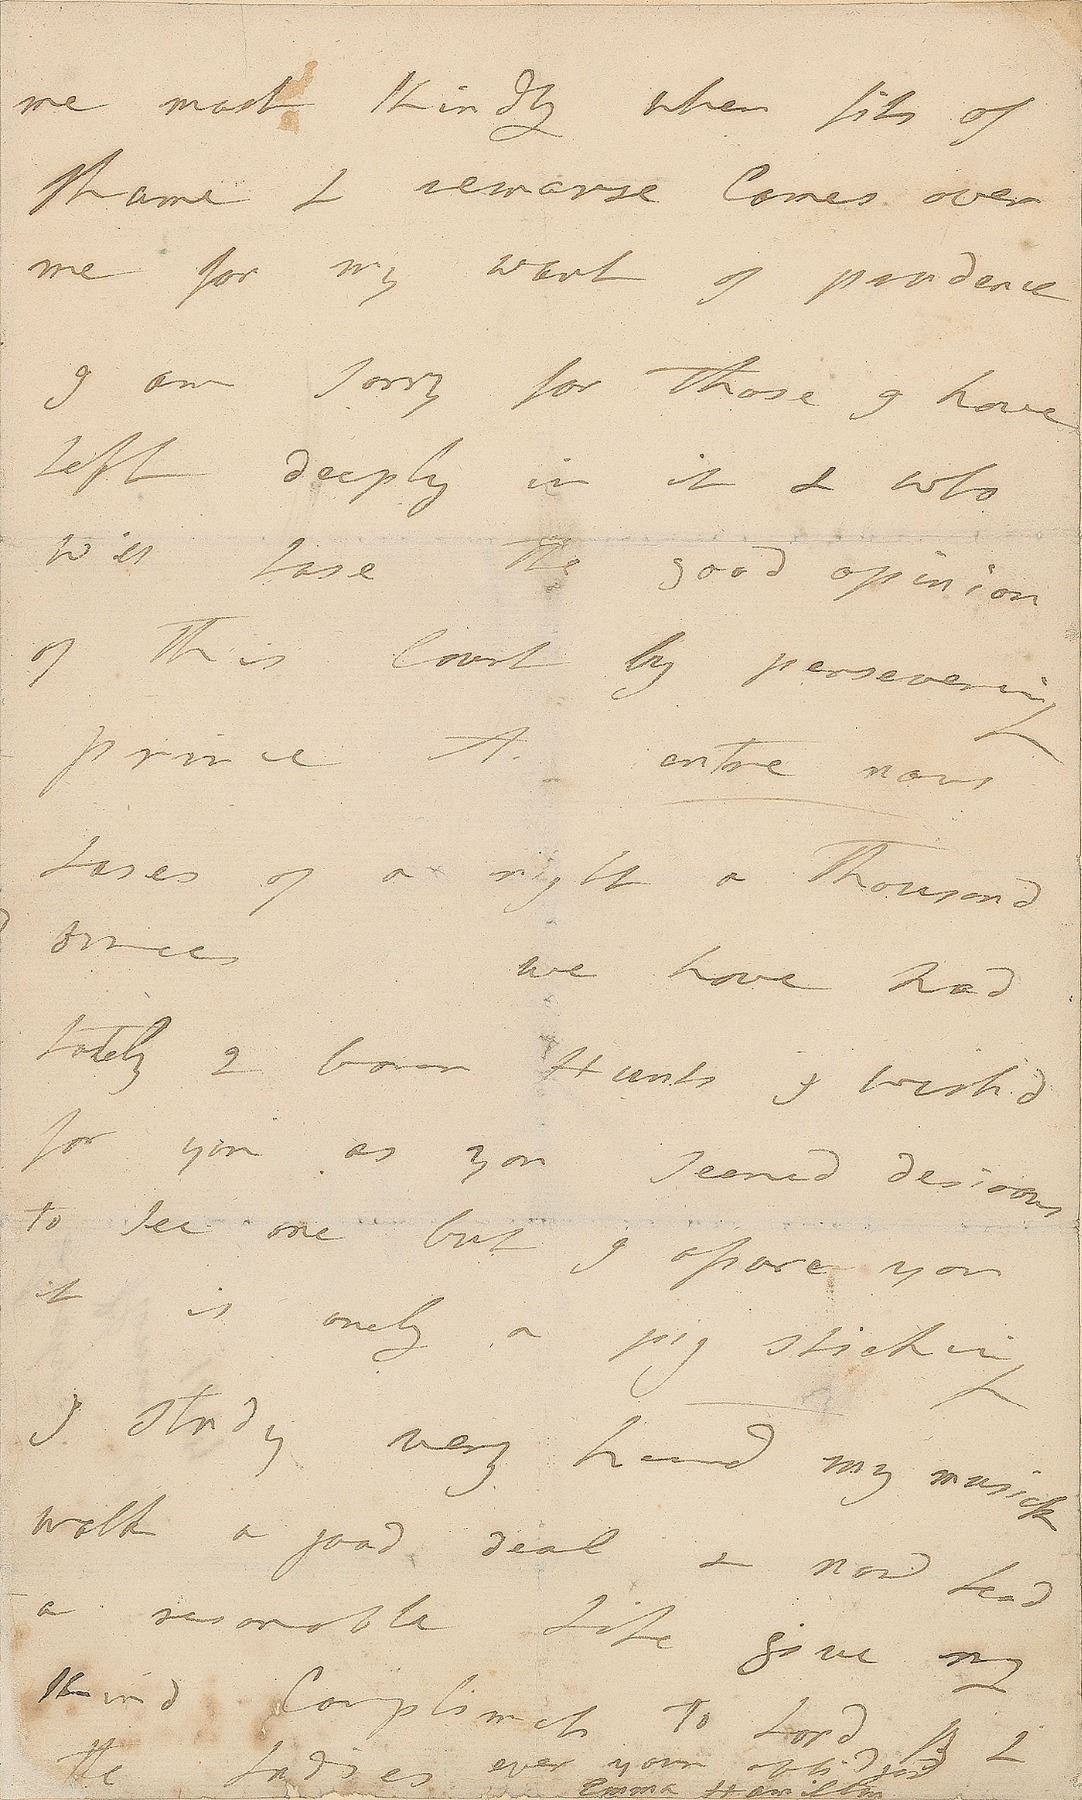 me most Kindly when fits of
shame & remorse Comes over
me for my want of prudence
I am sorry for those I have
left deeply in it & who
will lose the good opinion
of this Court by persevering
prince A. entre nous
loses of a night a Thousand
ounces we have had
lately 2 boar Hunts I wish'd
for you as you seemed desirous
to see one but I assure you
it is onely a pig sticking
I study very hard my musick
walk a good deal & now lead
a reasonable life give my
Kind Compliments to Lord B &
the Ladies ever your obligd
Emma Hamilton